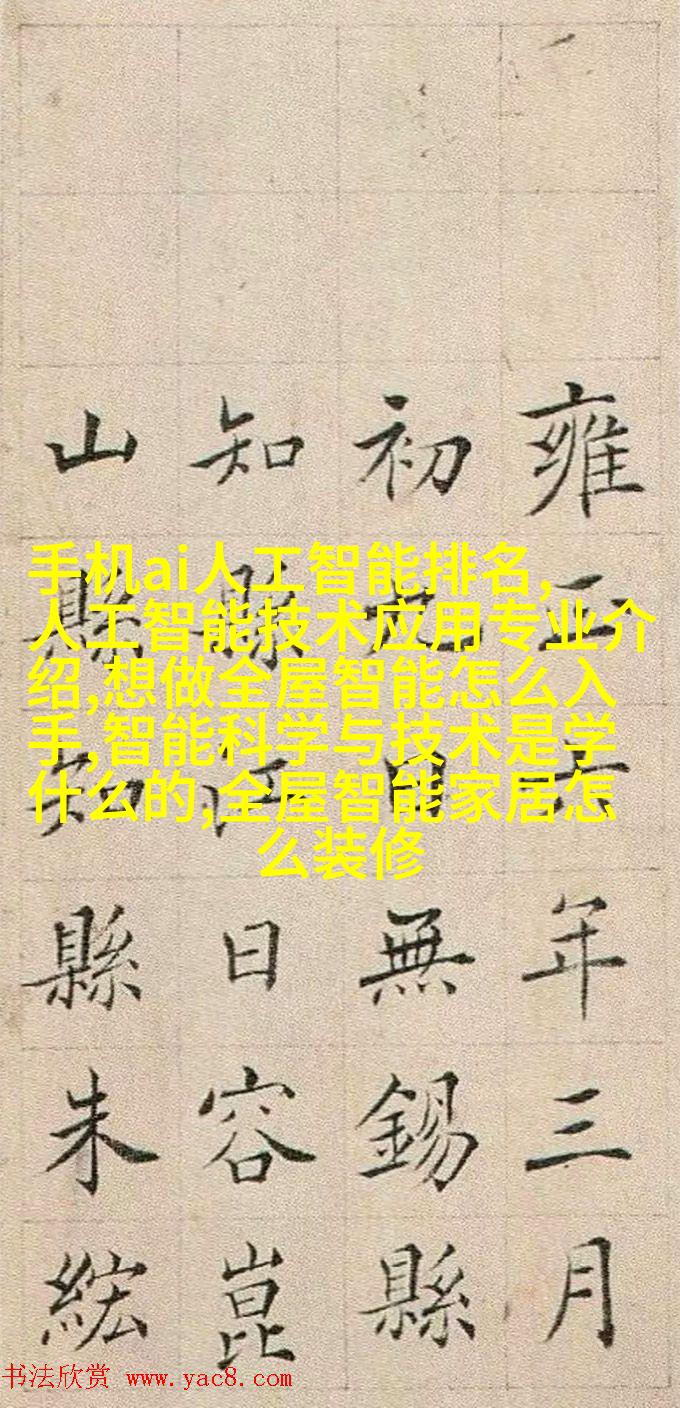 雍正六年三月
初日無錫縣
知縣江日容崑
山縣知縣朱紘
手机ai人工智能排名,
人工智能技术应用专业介
绍,想做全屋智能怎么入
手,智能科学与技术是学
什么的,全屋智能家居怎
么装修
书法欣赏 www.yac8.com